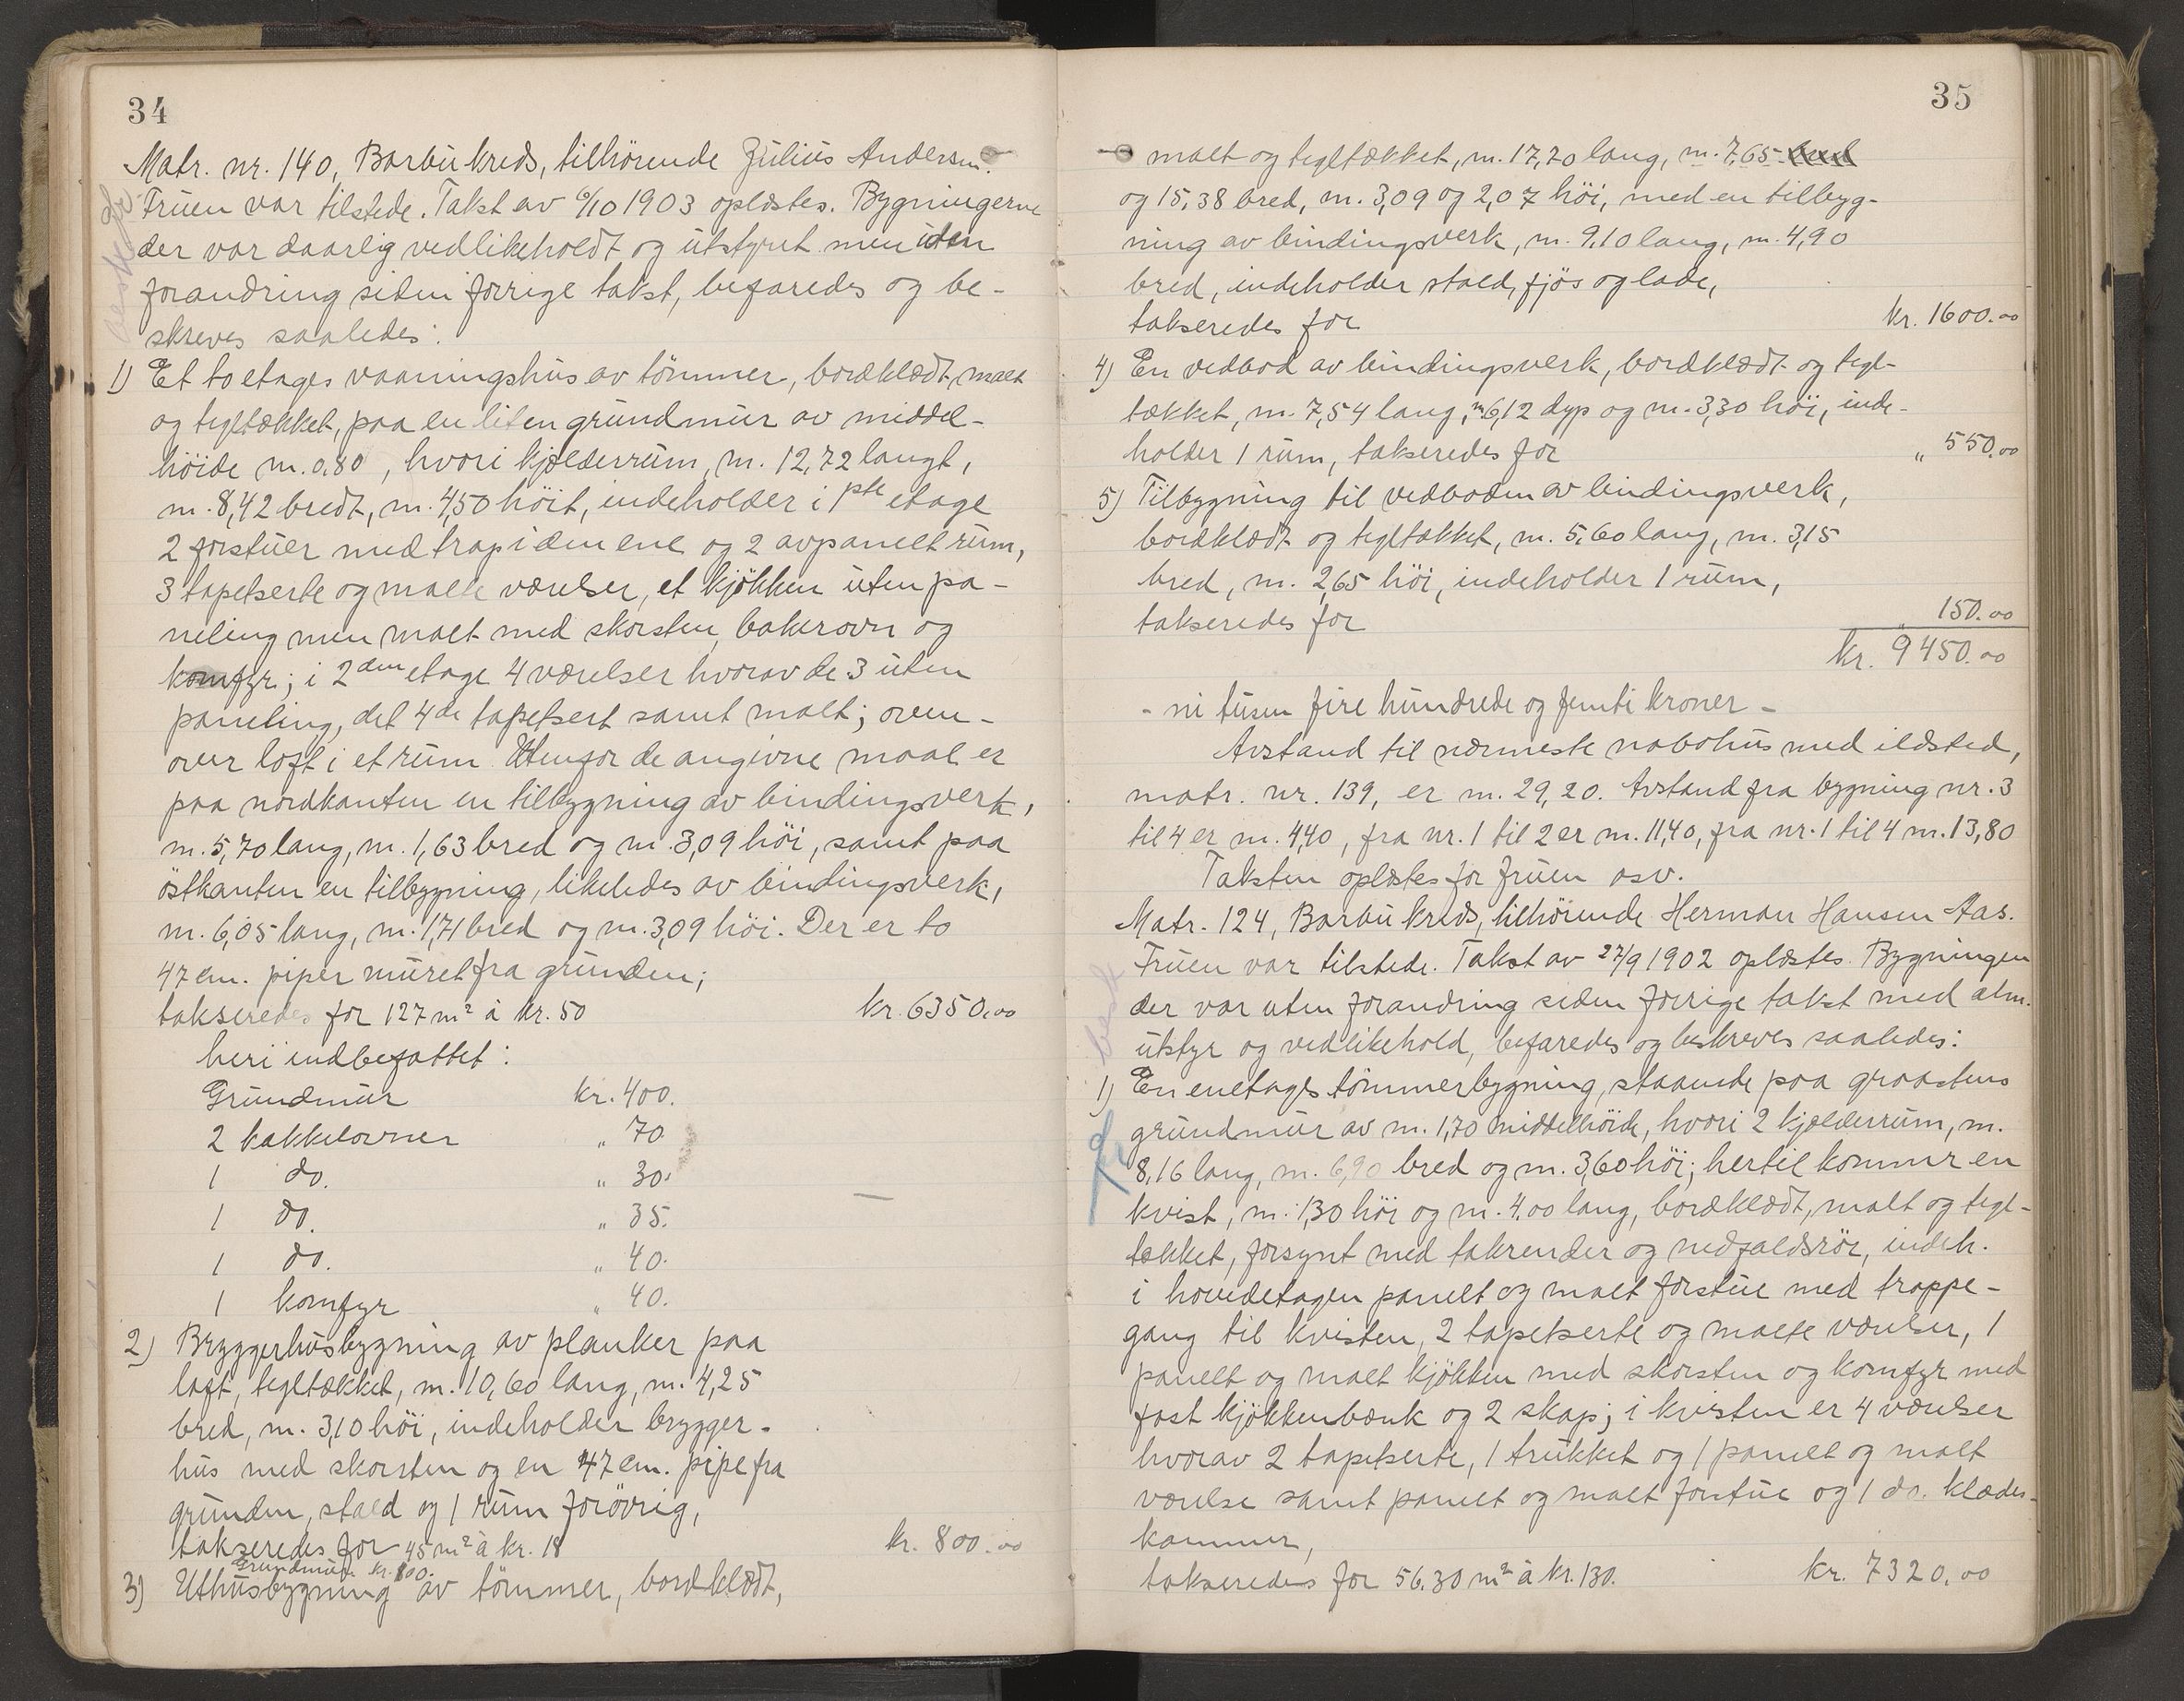 34
Matr. nr. 140, Barbu kreds, tilhörende Julius Andersen.
Fruen var tilstede. Takst av 6/10 1903 oplæstes. Bygningerne
der var daarlig vedlikeholdt og utstyret men uten
forandring siden forrige takst, befaredes og be-
skreves saaledes:
1) Et to etages vaaningshus av tömmer, bordklædt, malt
og tegltækket, paa en liten grundmur av middel-
höide m. 0,80, hvori kjælderrum, m. 12,72 langt,
m. 8,42 bredt, m. 4,50 höit, indeholder i 1ste etage
2 forstuer med trap i den ene og 2 avpanelt rum,
3 tapetserte og malte værelser, et kjökken uten pa-
neling men malt med skorsten, bakerovn og
komfyr; i 2den etage 4 værelser hvorav de 3 uten
paneling, det 4de tapetsert samt malt; oven-
over loft i et rum. Utenfor de angivne maal er
paa nordkanten en tilbygning av bindingsverk,
m. 5,70 lang, m. 1,63 bred og m. 3,09 höi, samt paa
östkanten en tilbygning, likeledes av bindingsverk,
m. 6,05 lang, m. 1,71 bred og m. 3,09 höi. Der er to
47 cm. piper muret fra grunden;
takseredes for 127 m² à kr. 50 kr. 6350,00
heri indbefattet:
Grundmur kr. 400.
2 kakkelovner " 70.
1 do. " 30.
1 do. " 35.
1 do. " 40.
1 komfyr " 40.
2) Bryggerhusbygning av planker paa
loft, tegltækket, m. 10,60 lang, m. 4,25
bred, m. 3,10 höi, indeholder brygger-
hus med skorsten og en 47 cm. pipe fra
grunden, stald og 1 rum forövrig,
takseredes for 45 m² à kr. 18 kr. 800.00
Grundmur kr. 100.
3) Uthusbygning av tömmer, bordklædt,
35
malt og tegltækket, m. 17,70 lang, m. 7,65
og 15,38 bred, m. 3,09 og 2,07 höi, med en tilbyg-
ning av bindingsverk, m. 9,10 lang, m. 4,90
bred, indeholder stald, fjös og lade,
takseredes for kr. 1600.00
4) En vedbod av bindingsverk, bordklædt og tegl-
tækket, m. 7,54 lang, m 6,12 dyp og m. 3,30 höi, inde-
holder 1 rum, takseredes for " 550.00
5) Tilbygning til vedboden av bindingsverk,
bordklædt og tegltækket, m. 5,60 lang, m. 3,15
bred, m. 2,65 höi, indeholder 1 rum,
takseredes for " 150.00
kr. 9450.00
- ni tusen fire hundrede og femti kroner -
Avstand til nærmeste nabohus med ildsted,
matr. nr. 139, er m. 29,20. Avstand fra bygning nr. 3
til 4 er m. 4,40, fra nr. 1 til 2 er m. 11,40, fra nr. 1 til 4 m. 13,80
Taksten oplæstes for fruen osv.
Matr. 124, Barbu kreds, tilhörende Herman Hansen Aas.
Fruen var tilstede. Takst av 27/9 1902 oplæstes. Bygningen
der var uten forandring siden forrige takst med alm.
utstyr og vedlikehold, befaredes og beskreves saaledes:
1) En enetages tömmerbygning, staaende paa graastens
grundmur av m. 1,70 middelhöide, hvori 2 kjælderrum, m.
8,16 lang, m. 6,90 bred og m. 3,60 höi; hertil kommer en
kvist, m. 1,30 höi og m. 4,00 lang, bordklædt, malt og tegl-
tækket, forsynt med takrender og nedfaldsrör, indeh.
i hovedetagen panelt og malt forstue med trappe-
gang til kvisten, 2 tapetserte og malte værelser, 1
panelt og malt kjökken med skorsten og komfyr med
fast kjökkenbænk og 2 skap; i kvisten er 4 værelser
hvorav 2 tapetserte, 1 trukket og 1 panelt og malt
værelse samt panelt og malt forstue og 1 do. klædes-
kammer,
takseredes for 56.30 m² à kr. 130. kr. 7320,00